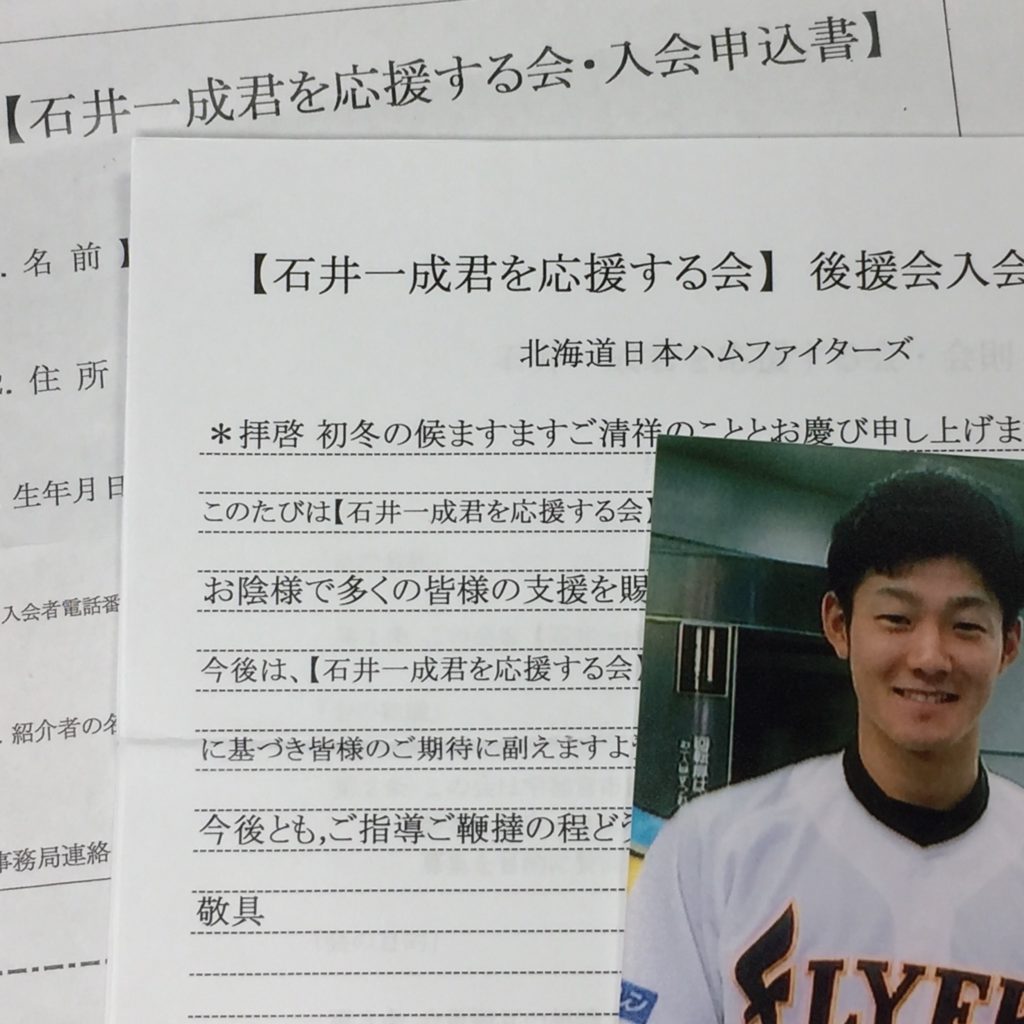 【石井一成君を応援する会・入会申込書】
名 前 】
住 所
生年月日
入会者電話番
紹介者の名
事務局連絡
【石井一成君を応援する会】 後援会入会
北海道日本ハムファイターズ
*拝啓 初冬の候ますますご清祥のこととお慶び申し上げま
このたびは【石井一成君を応援する会】
お陰様で多くの皆様の支援を賜
今後は、【石井一成君を応援する会】
に基づき皆様のご期待に副えますよう
今後とも,ご指導ご鞭撻の程どう
敬具
FLYER